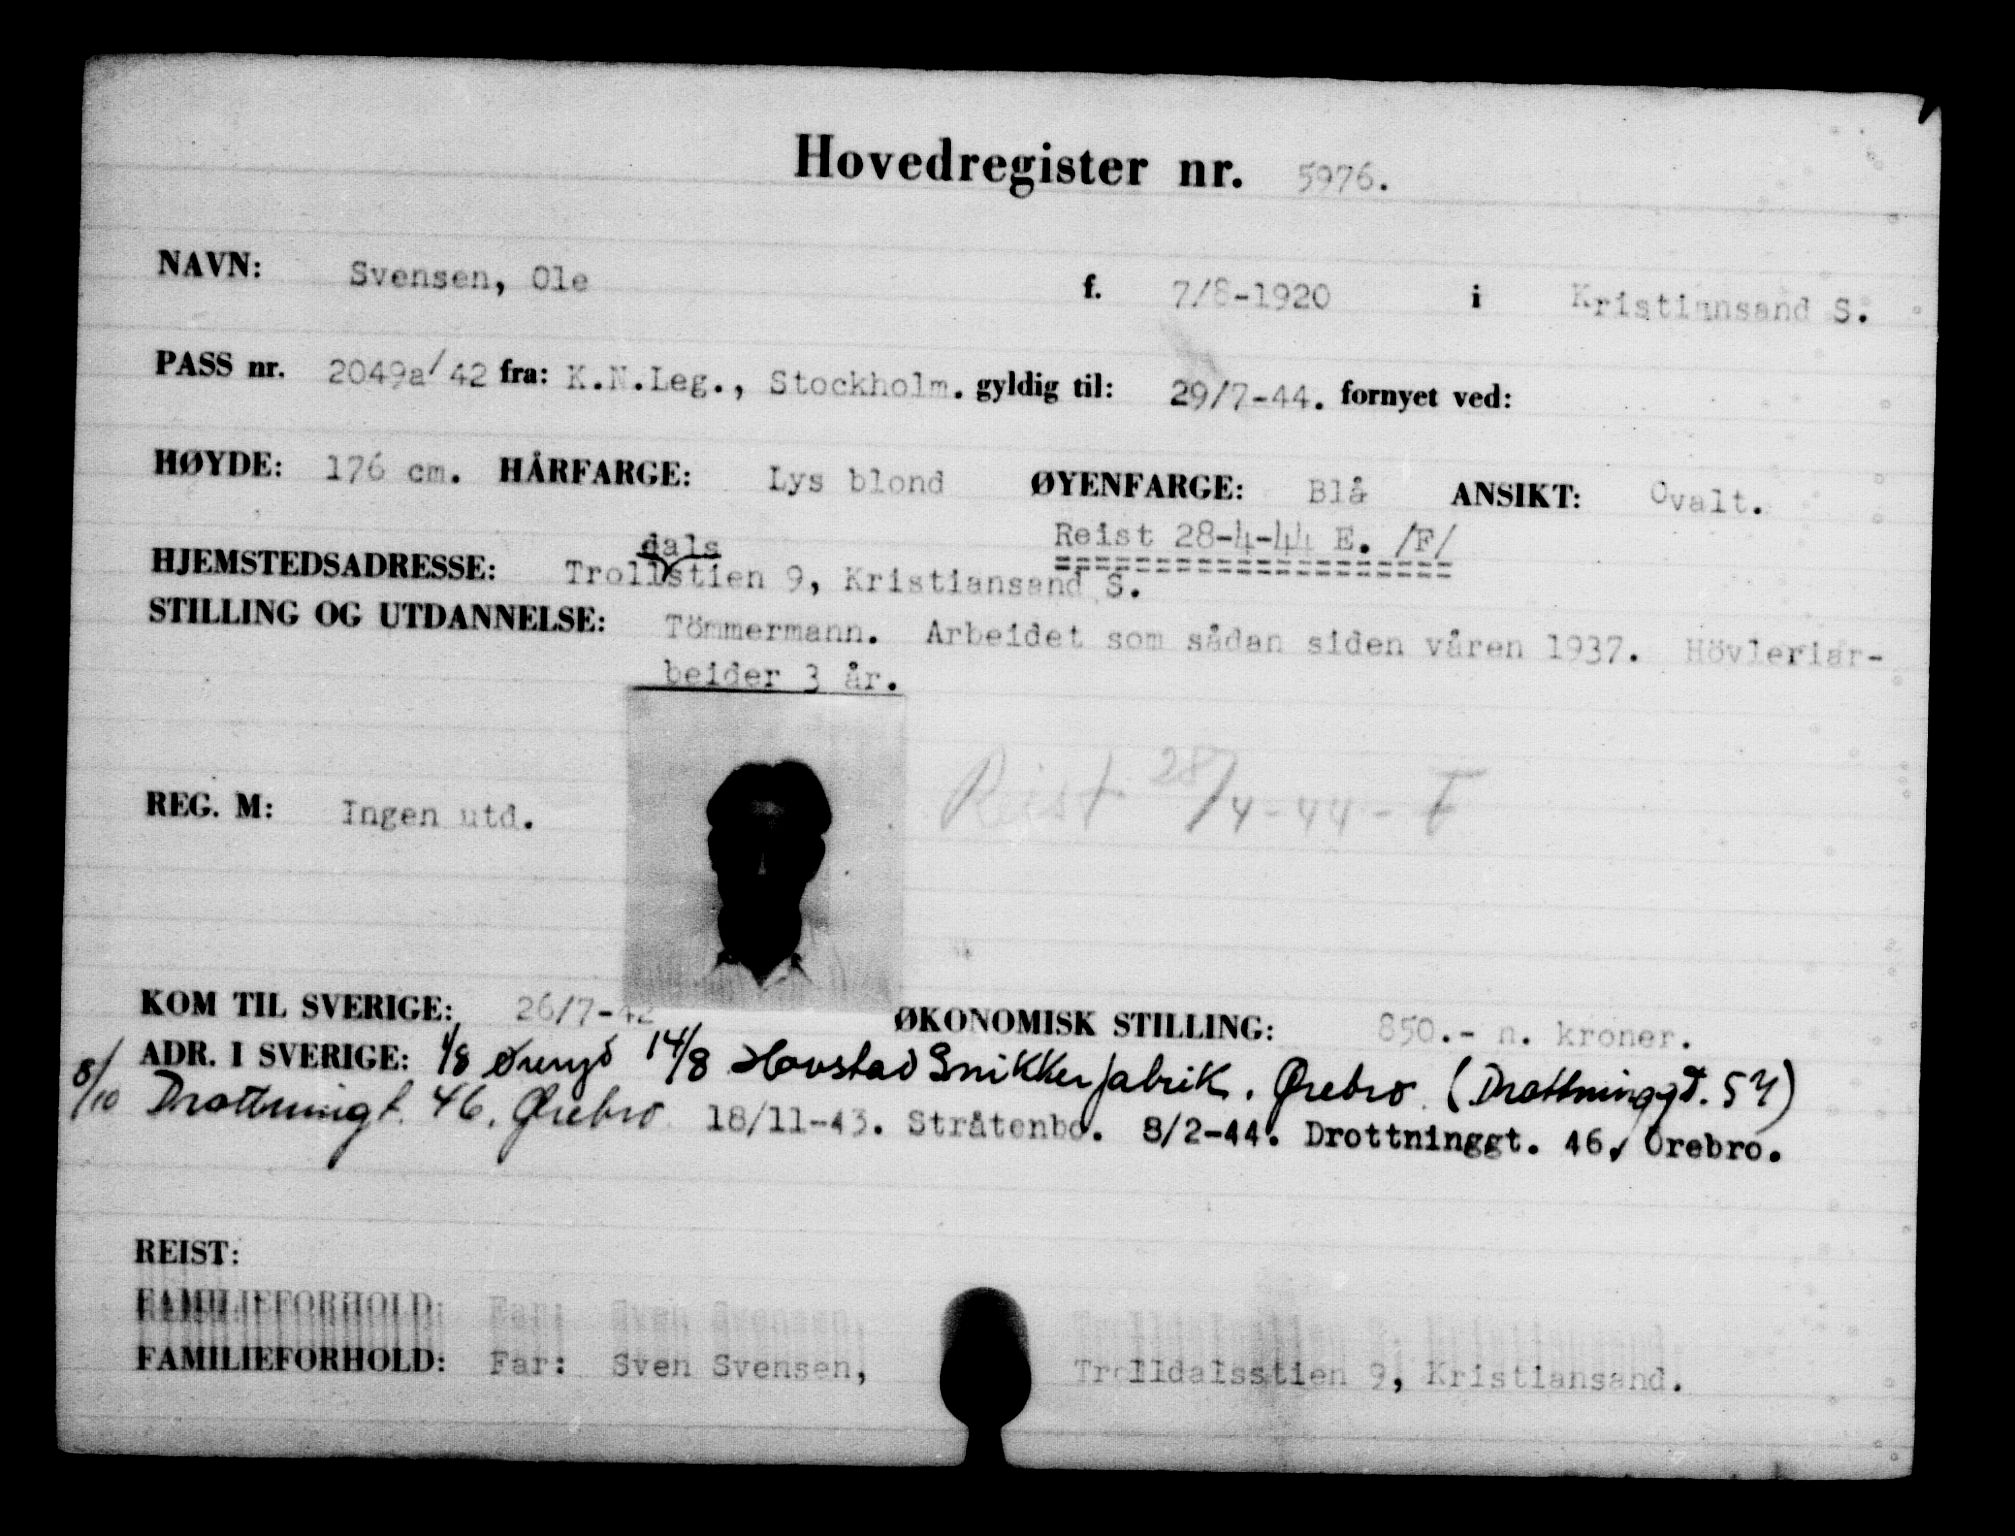 Hovedregister nr. 5976.
NAVN: Svensen, Ole f. 7/8-1920 i Kristiansand S.
PASS nr. 2049a/42 fra: K.N.Leg., Stockholm. gyldig til: 29/7-44. fornyet ved:
HØYDE: 176 cm. HÅRFARGE: Lys blond ØYENFARGE: Blå ANSIKT: Ovalt.
Reist 28-4-44 E. /F/
dals
HJEMSTEDSADRESSE: Trollstien 9, Kristiansand S.
STILLING OG UTDANNELSE: Tömmermann. Arbeidet som sådan siden våren 1937. Hövleriar-
beider 3 år.
Reist 28/4-44-F
REG. M: Ingen utd.
KOM TIL SVERIGE: 26/7-42 ØKONOMISK STILLING: 850.- n. kroner.
ADR. I SVERIGE: 1/8 Øreryd 14/8 Hovstad Snikkerfabrik, Ørebro. (Drottninggt. 57)
8/10 Drottninggt. 46, Ørebro 18/11-43. Stråtenbo. 8/2-44. Drottninggt. 46, Örebro.
REIST:
FAMILIEFORHOLD: Far: Sven Svensen,
FAMILIEFORHOLD: Far: Sven Svensen, Trolldalsstien 9, Kristiansand.